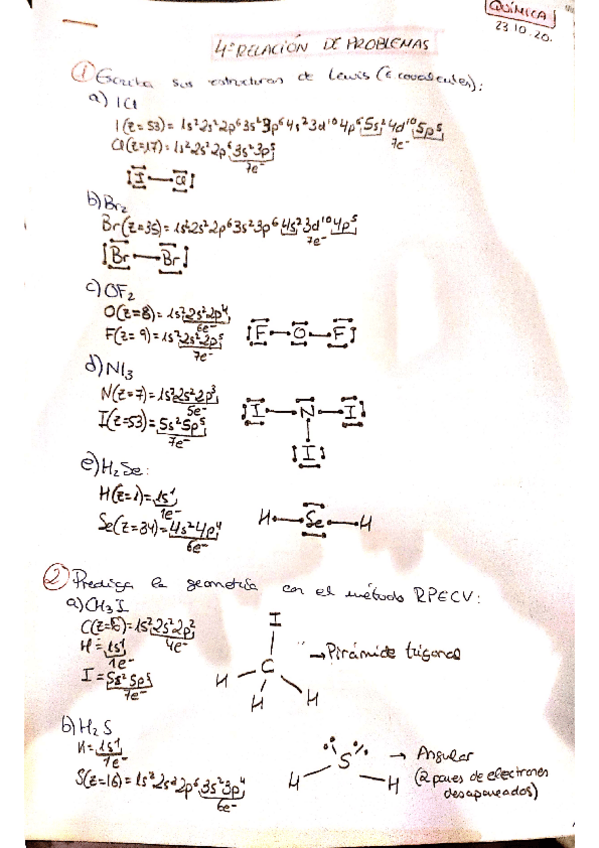 QUÍMICA
23.10.20.
4ª RELACIÓN DE PROBLEMAS
① Escriba sus estructuras de Lewis (e⁻ covalentes):
a) ICl
I(z=53)= 1s²2s²2p⁶3s²3p⁶4s²3d¹⁰4p⁶5s²4d¹⁰5p⁵
7e⁻
Cl(z=17)= 1s²2s²2p⁶3s²3p⁵
7e⁻
I Cl
b) Br₂
Br(z=35)= 1s²2s²2p⁶3s²3p⁶4s²3d¹⁰4p⁵
7e⁻
Br Br
c) OF₂
O(z=8)= 1s²2s²2p⁴
6e⁻
F(z=9)= 1s²2s²2p⁵
7e⁻
F O F
d) NI₃
N(z=7)= 1s²2s²2p³
5e⁻
I(z=53)= 5s²5p⁵
7e⁻
I N I
I
e) H₂Se:
H(z=1)= 1s¹
1e⁻
Se(z=34)= 4s²4p⁴
6e⁻
H Se H
② Prediga la geometría con el método RPECV:
a) CH₃I
C(z=6)= 1s²2s²2p²
4e⁻
H= 1s¹
1e⁻
I= 5s²5p⁵
7e⁻
I
C
H H H
→ Pirámide trigonal
b) H₂S
H= 1s¹
1e⁻
S(z=16)= 1s²2s²2p⁶3s²3p⁴
6e⁻
S
H H
→ Angular
(2 pares de electrones
desapareados)